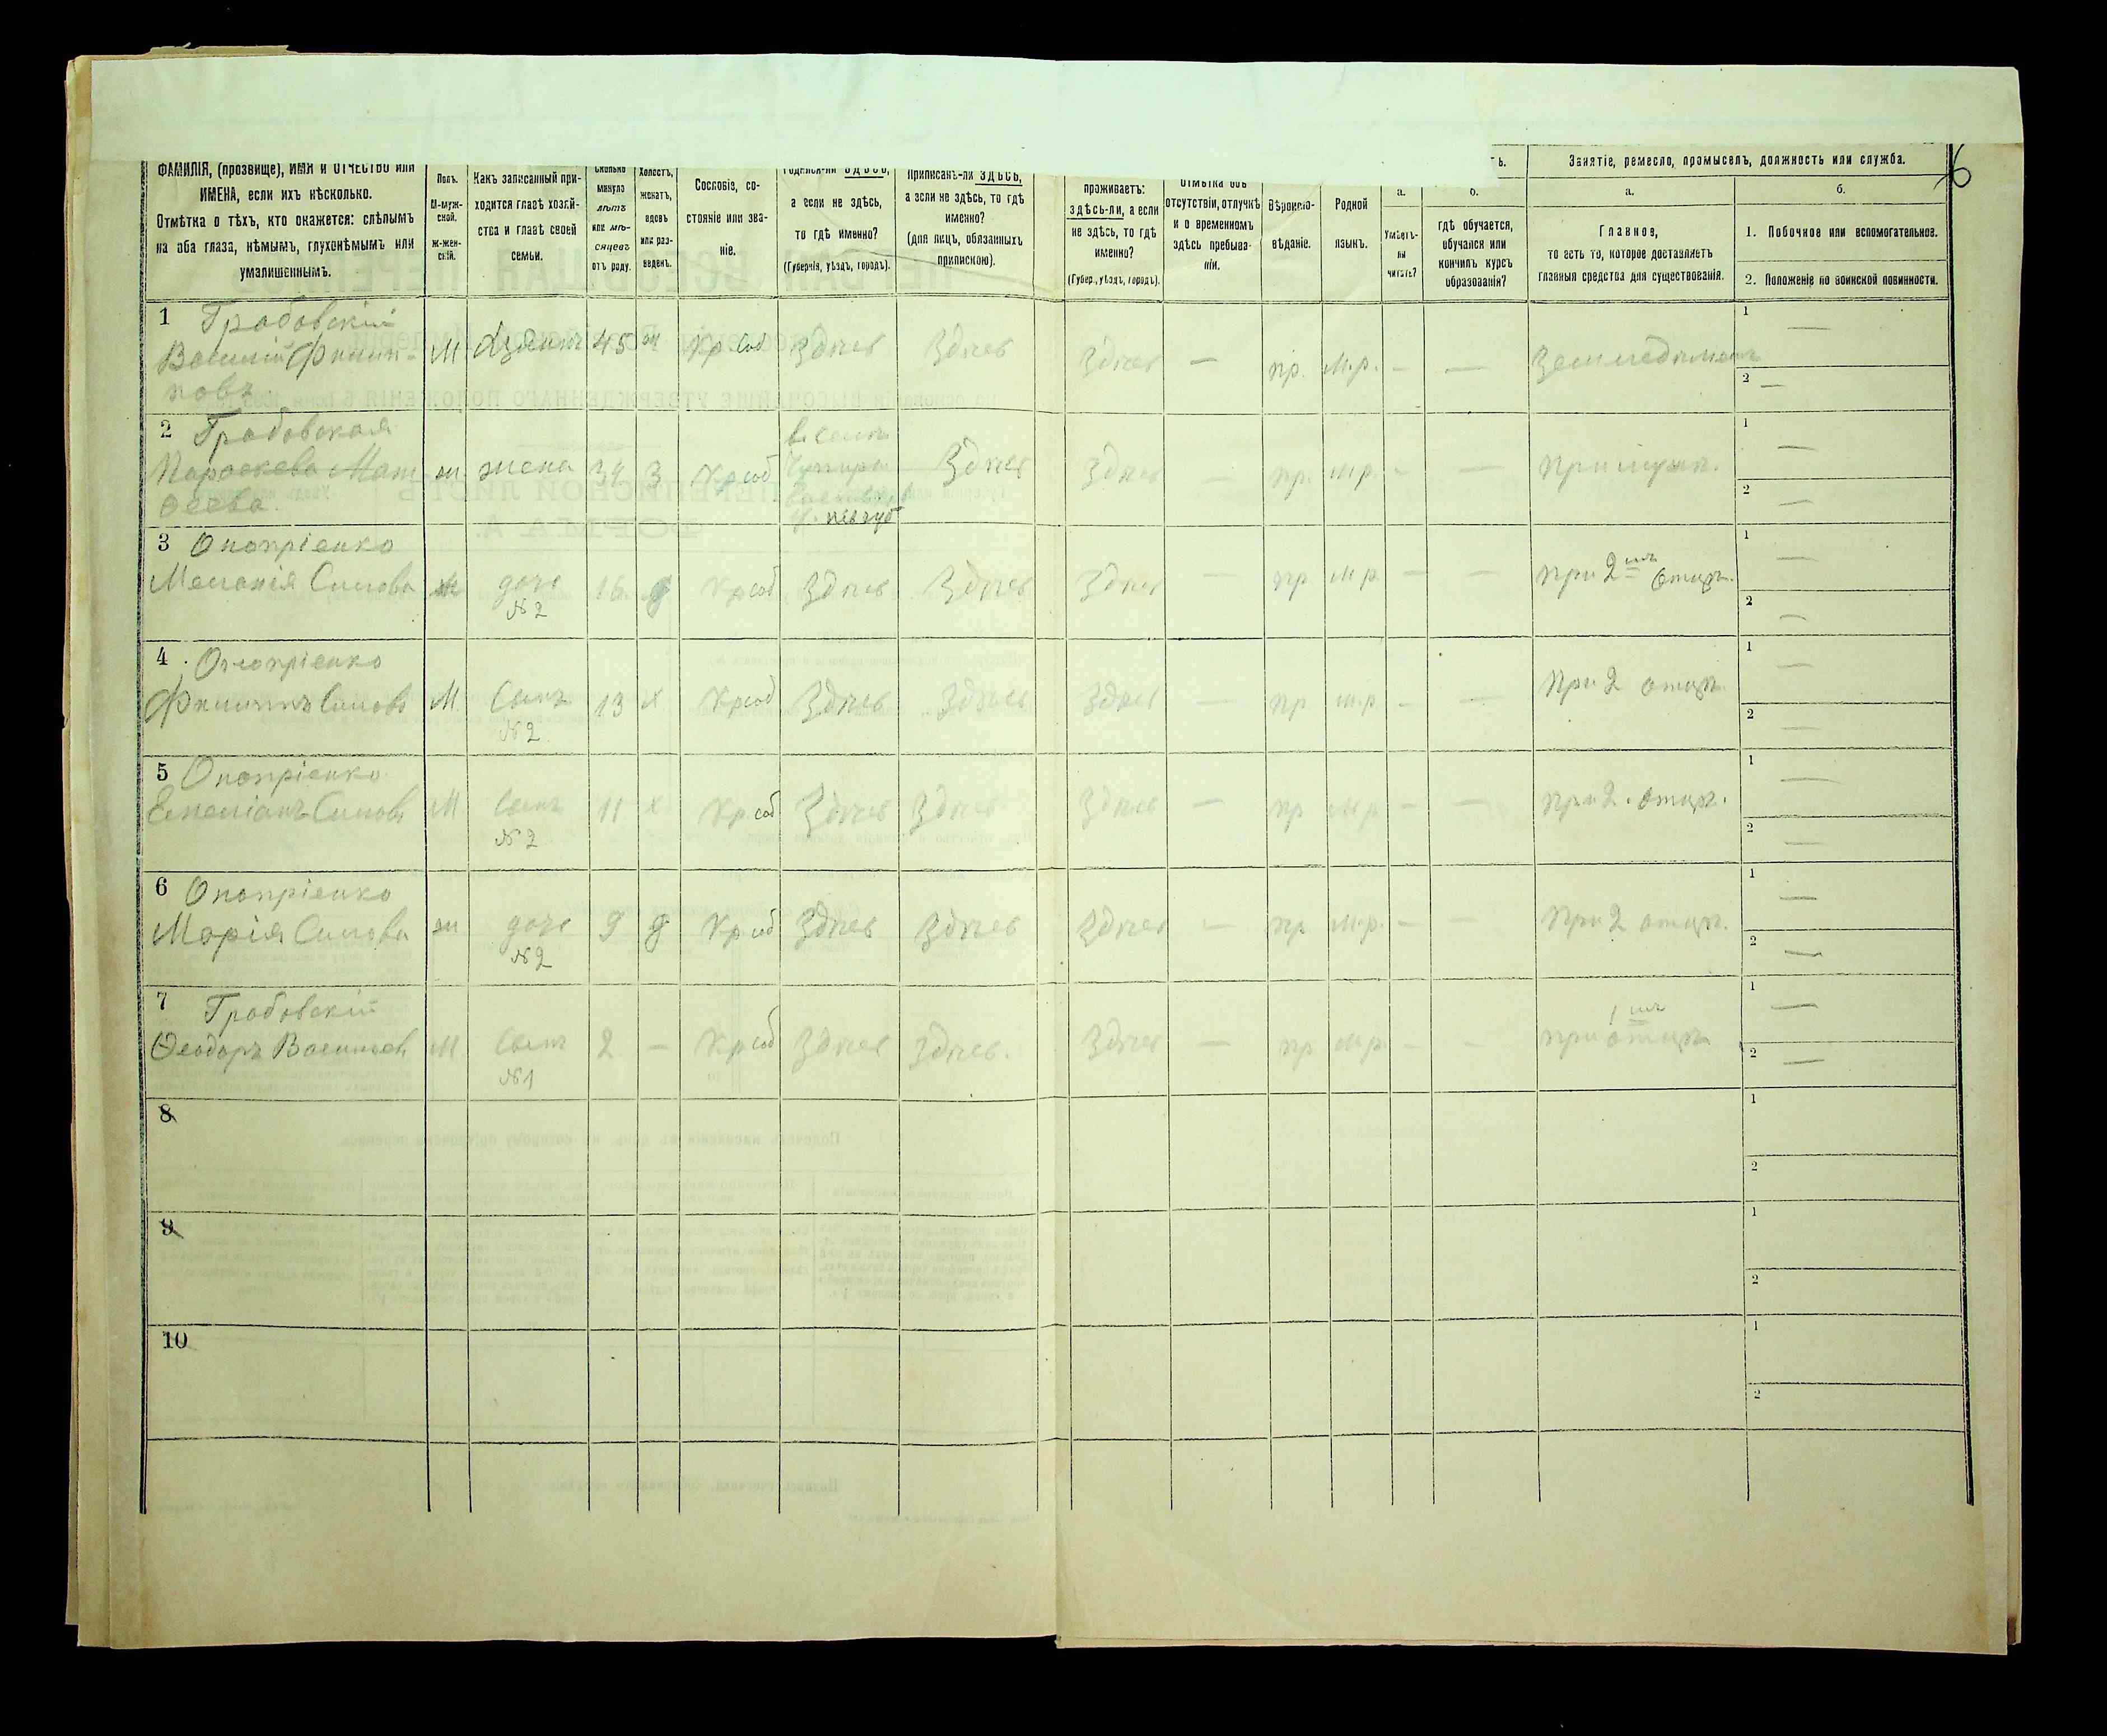 ФАМИЛІЯ, (прозвище), ИМЯ и ОТЧЕСТВО или
ИМЕНА, если ихъ нѣсколько.
Отмѣтка о тѣхъ, кто окажется: слѣпымъ
на оба глаза, нѣмымъ, глухонѣмымъ или
умалишеннымъ.
Полъ.
М-муж-
ской.
Ж-жен-
скій.
Какъ записанный при-
ходится главѣ хозяй-
ства и главѣ своей
семьи.
Сколько
минуло
лѣтъ
или мѣ-
сяцевъ
отъ роду.
Холостъ,
женатъ,
вдовъ
или раз-
веденъ.
Сословіе, со-
стояніе или зва-
ніе.
Родился-ли ЗДѢСЬ,
а если не здѣсь,
то гдѣ именно?
(Губернія, уѣздъ, городъ).
Приписанъ-ли ЗДѢСЬ,
а если не здѣсь, то гдѣ
именно?
(для лицъ, обязанныхъ
припискою).
проживаетъ:
ЗДѢСЬ-ЛИ, а если
не здѣсь, то гдѣ
именно?
(Губер., уѣздъ, городъ).
Отмѣтка объ
отсутствіи, отлучкѣ
и о временномъ
здѣсь пребыва-
ніи.
Вѣроиспо-
вѣданіе.
Родной
языкъ.
ть.
а.
Умѣетъ-
ли
читать?
б.
гдѣ обучается,
обучался или
кончилъ курсъ
образованія?
Занятіе, ремесло, промыселъ, должность или служба.
а.
Главное,
то есть то, которое доставляетъ
главныя средства для существованія.
б.
1. Побочное или вспомогательное.
2. Положеніе по воинской повинности.
6
1 Грабовскій
Василій Филип-
повъ
М хозяинъ 45 ж Кр. соб Здѣсь Здѣсь Здѣсь — пр. м.р. — — Земледѣлецъ
1 —
2 —
2 Грабовская
Параскева Мат-
ѳеева
ж. жена 39 з Кр соб
Здѣсь Здѣсь — пр. м.р. — — при мужѣ.
1 —
2 —
3 Оноприенко
Меланія Симова ж дочь 16 д Кр соб Здѣсь Здѣсь Здѣсь — пр. м р — — при 2 отцѣ.
№ 2
1 —
2 —
4 Оноприенко
Филиппъ Симовъ М Сынъ 13 х Кр соб Здѣсь Здѣсь Здѣсь — пр м.р. — — При 2 отцѣ
№ 2
1 —
2 —
5 Оноприенко
Емеліанъ Симовъ М Сынъ 11 х Кр. соб Здѣсь Здѣсь Здѣсь — пр м р — — при 2. отцѣ.
№ 2
1 —
2 —
6 Оноприенко
Марія Симова ж дочь 9 д Кр соб Здѣсь Здѣсь Здѣсь — пр м.р. — — При 2 отцѣ.
№ 2
1 —
2 —
7 Грабовскій
Ѳеодоръ Васильев М Сынъ 2 — Кр соб Здѣсь Здѣсь. Здѣсь — пр м р. — — при 1 отцѣ
№ 1
1 —
2 —
8
1
2
9
1
2
10
1
2